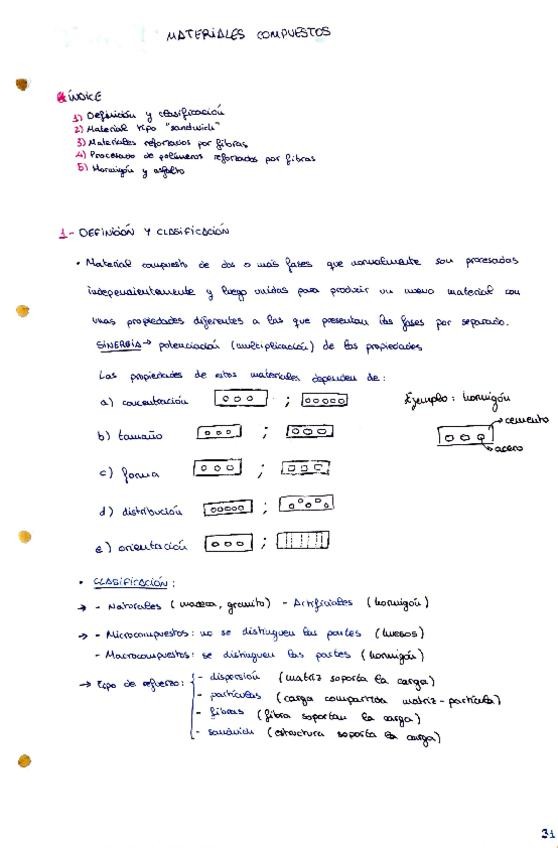 MATERIALES COMPUESTOS
ÍNDICE
1) Definición y clasificación
2) Material tipo "sandwich"
3) Materiales reforzados por fibras
4) Procesado de polímeros reforzados por fibras
5) Hormigón y asfalto
1- DEFINICIÓN Y CLASIFICACIÓN
• Material compuesto de dos o más fases que normalmente son procesadas
independientemente y luego unidas para producir un nuevo material con
unas propiedades diferentes a las que presentan las fases por separado.
SINERGIA → potenciación (multiplicación) de las propiedades
Las propiedades de estos materiales dependen de:
a) concentración ;
Ejemplo: hormigón
cemento
acero
b) tamaño ;
c) forma ;
d) distribución ;
e) orientación ;
• CLASIFICACIÓN:
→ - Naturales (madera, granito) - Artificiales (hormigón)
→ - Microcompuestos: no se distinguen las partes (huesos)
- Macrocompuestos: se distinguen las partes (hormigón)
→ tipo de refuerzo: - dispersión (matriz soporta la carga)
- partículas (carga compartida matriz-partícula)
- fibras (fibra soportan la carga)
- sandwich (estructura soporta la carga)
31